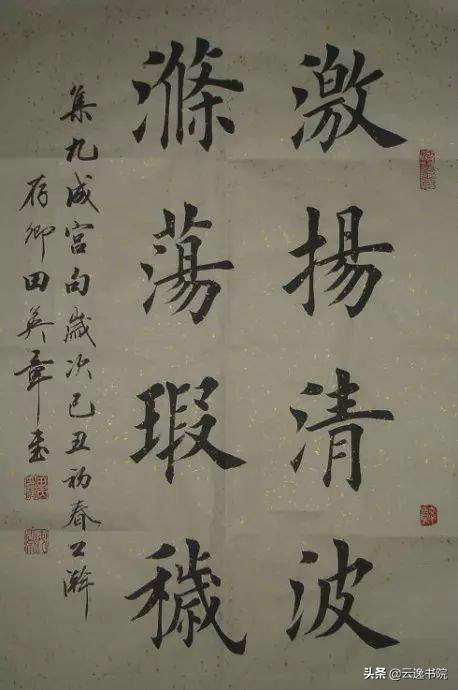 激揚清波
滌蕩瑕穢
集九成宫句歲次己丑初春
存卿田英章書
头条 @云逸书院